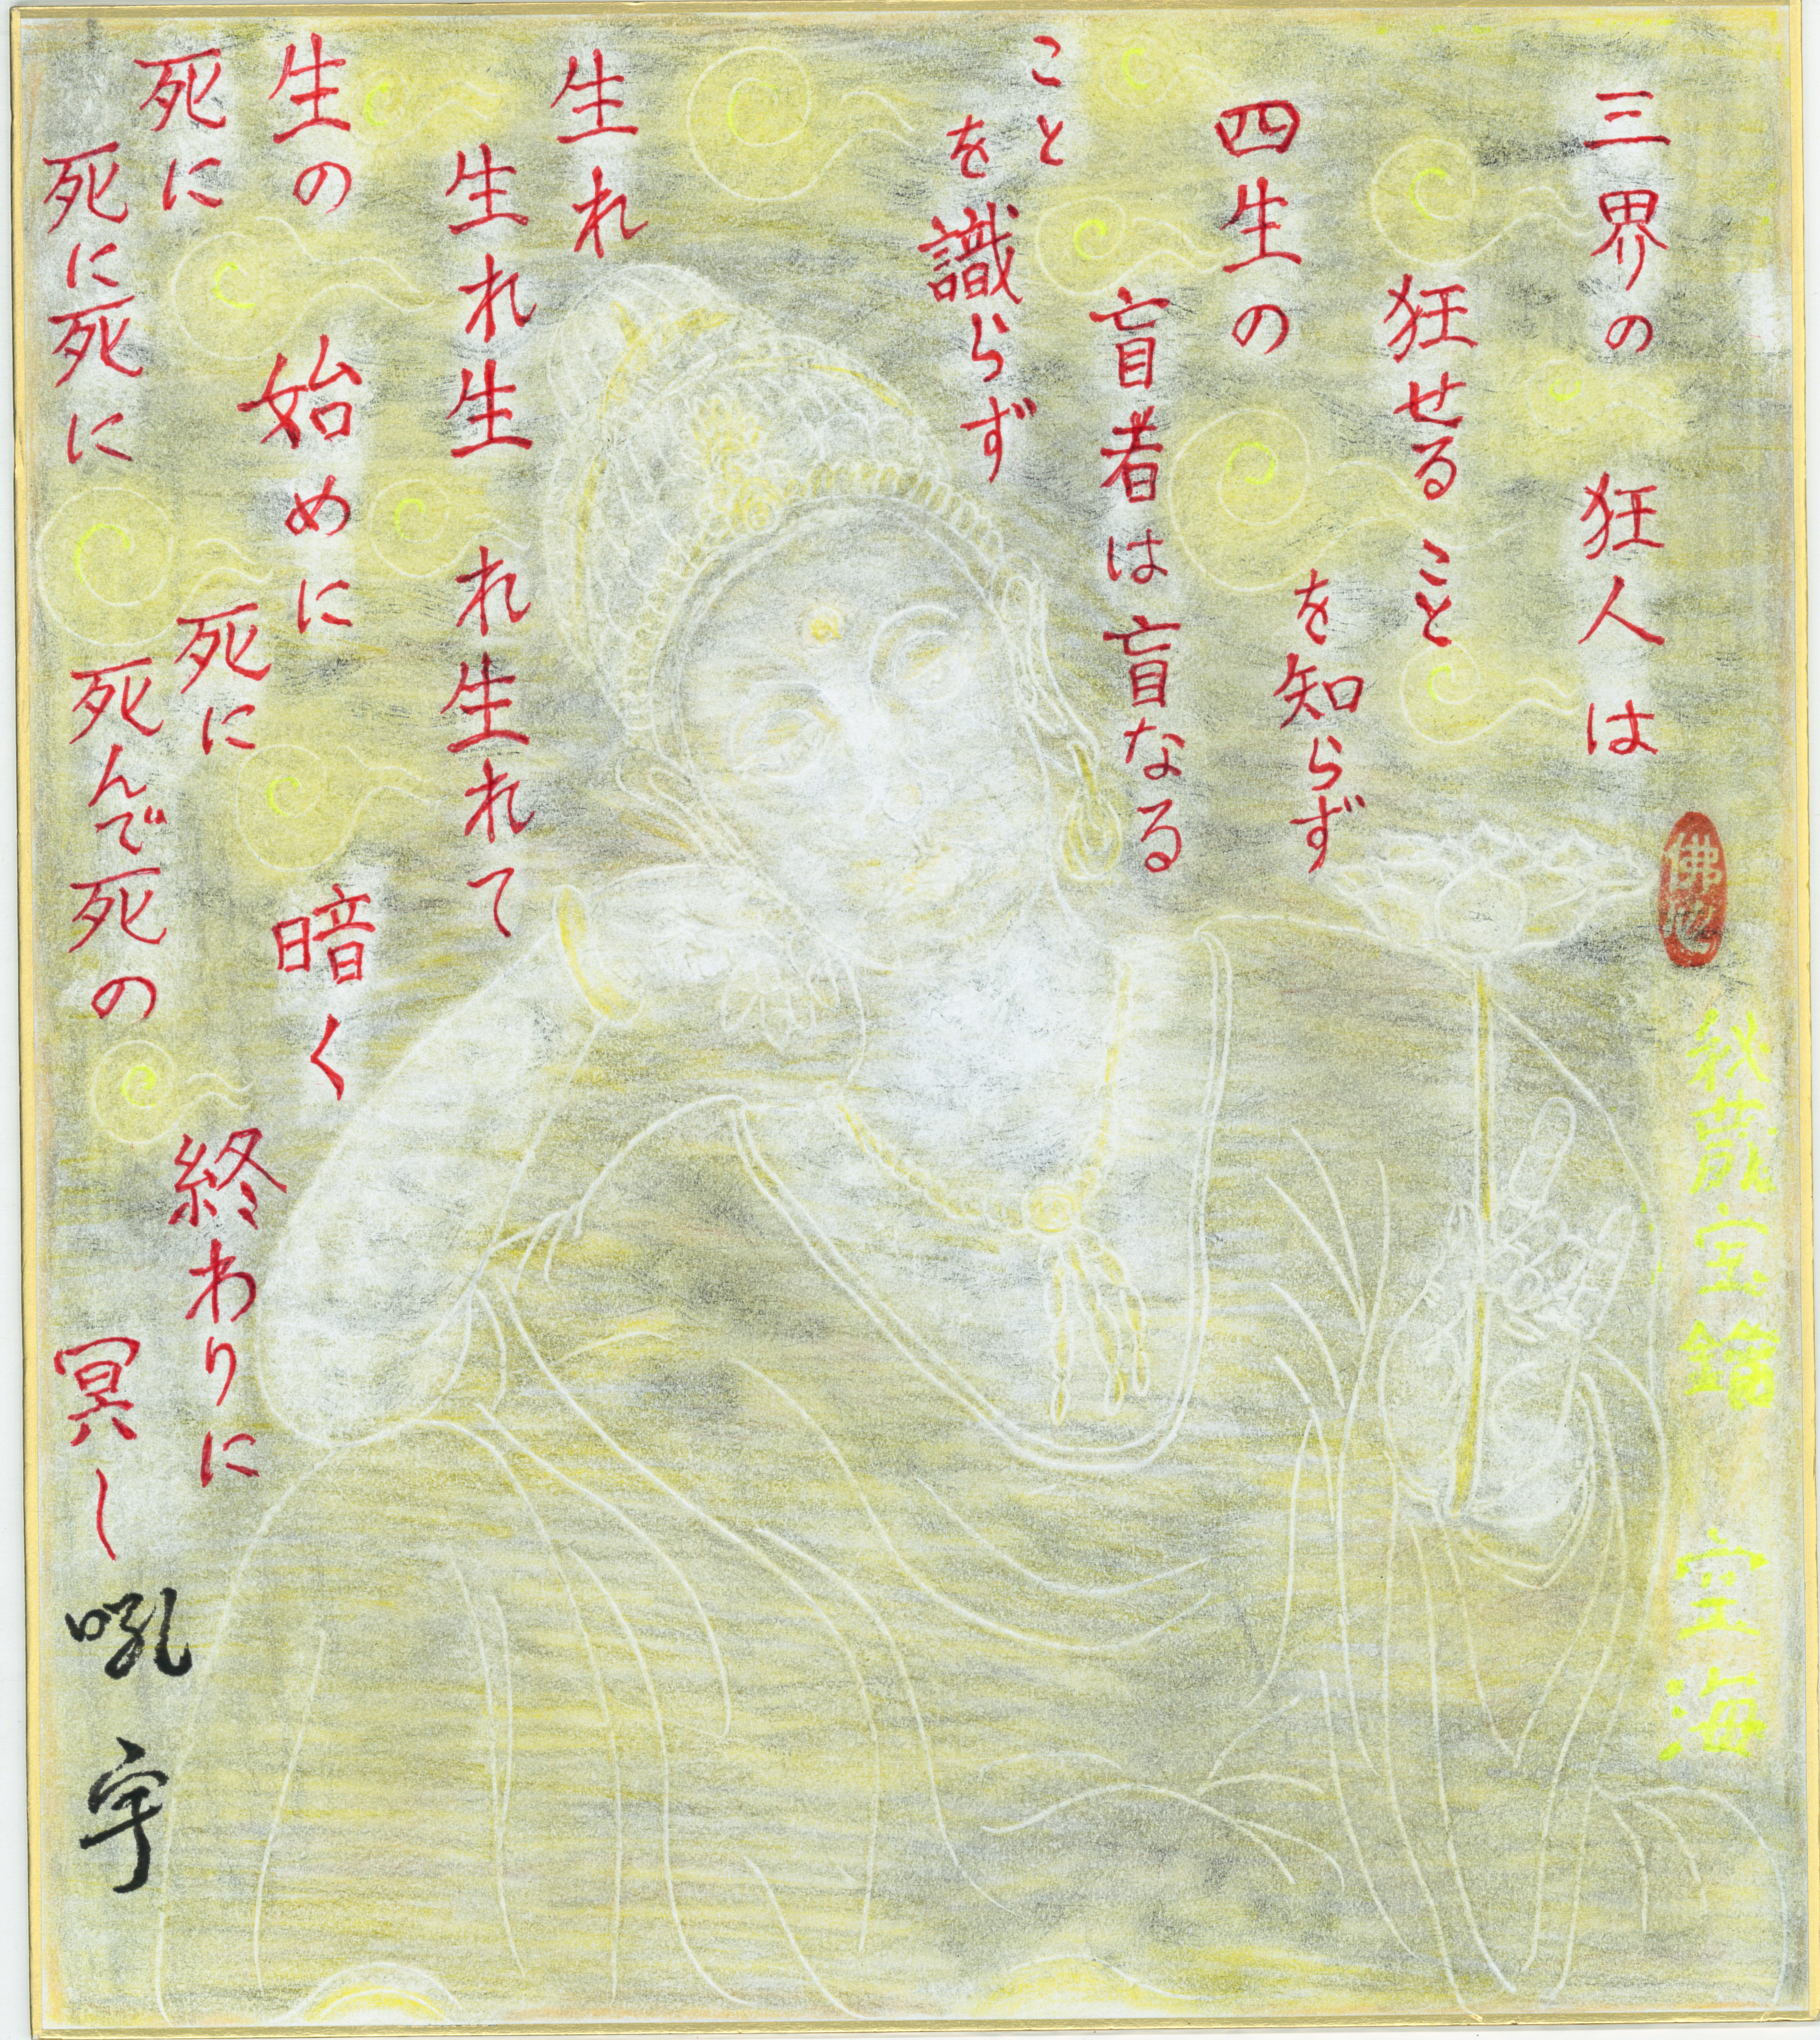 秘蔵宝鑰 空海
三界の 狂人は
狂せること
を知らず
四生の
盲者は盲なる
こと
を識らず
生れ
生れ生 れ生れて
生の 始めに 暗く
死に
死に死に
死に
死んで死の
終わりに
冥し
吼宇